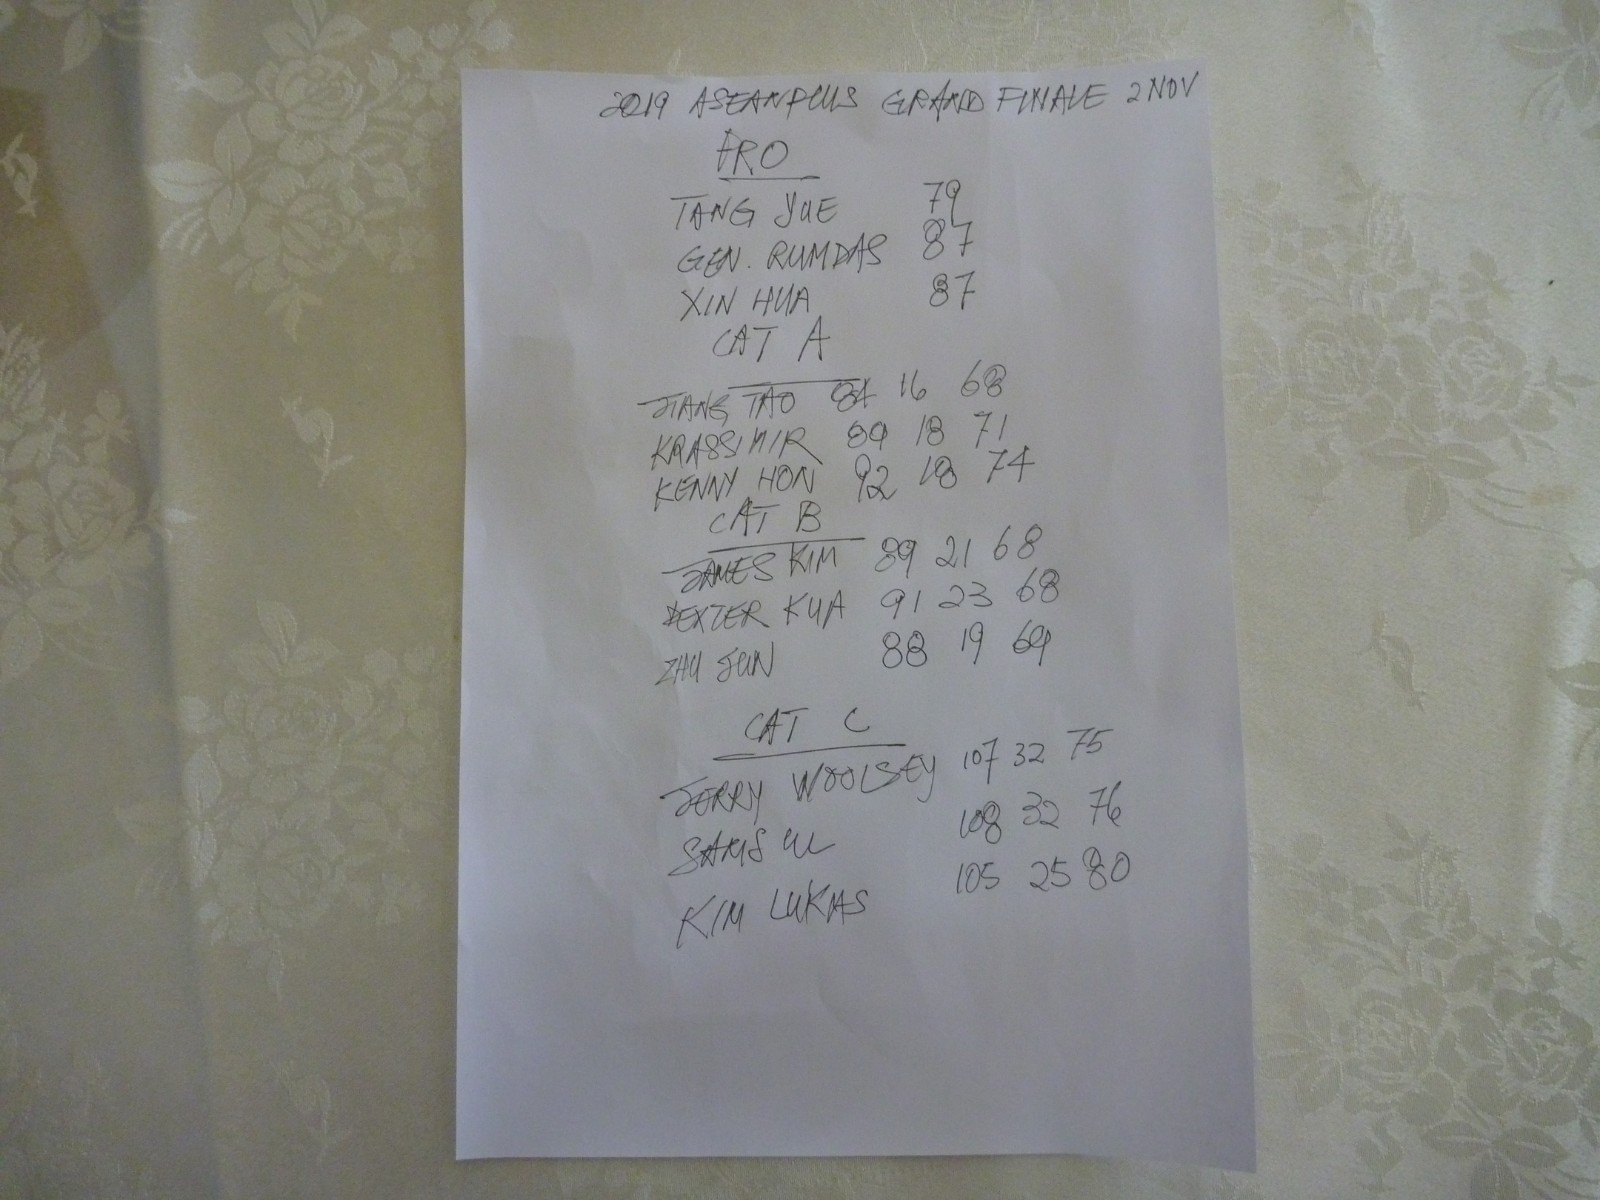 2019 ASEANPLUS GRAND FINALE 2 NOV
PRO
TANG YUE 79
GEN. RUMDAS 87
XIN HUA 87
CAT A
JIANG TAO 84 16 68
KRASSIMIR 89 18 71
KENNY HON 92 18 74
CAT B
JAMES KIM 89 21 68
DEXTER KUA 91 23 68
ZHU JUN 88 19 69
CAT C
JERRY WOOLSEY 107 32 75
SAMSUL 108 32 76
KIM LUKAS 105 25 80